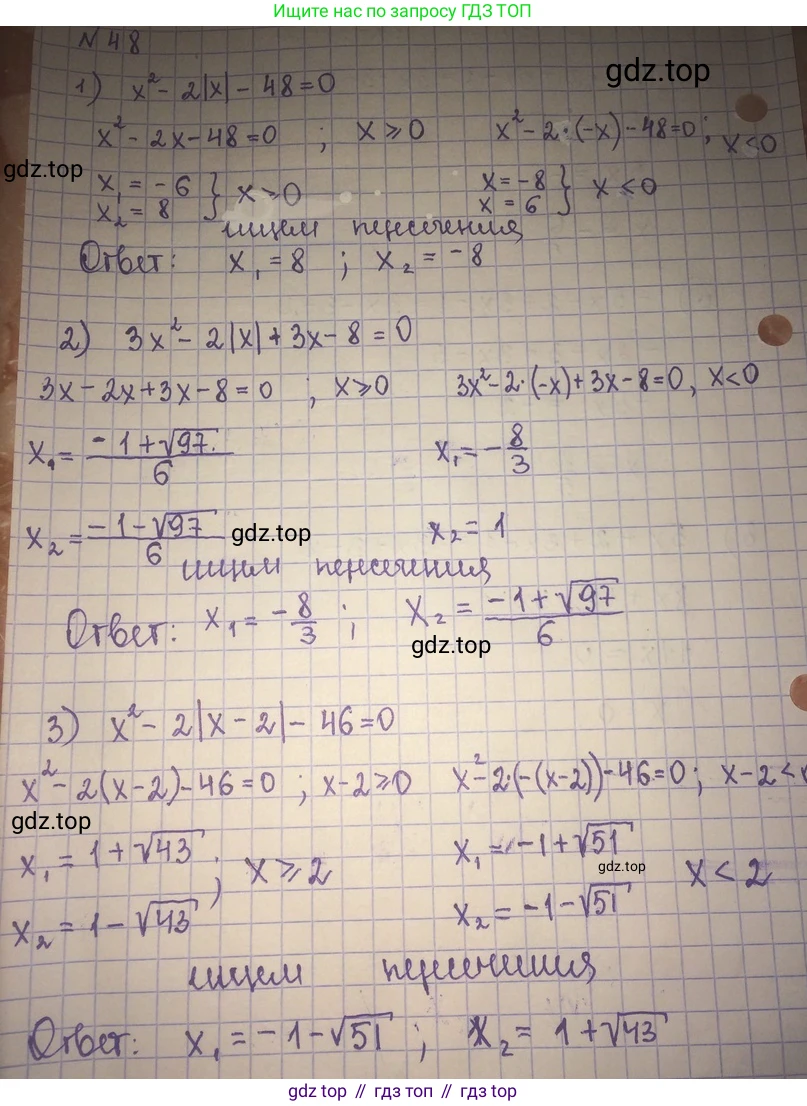 Ищите нас по запросу ГДЗ ТОП
N 48
gdz.top
1) x² - 2|x| - 48 = 0
x² - 2x - 48 = 0 ; x ⩾ 0 x² - 2·(-x) - 48 = 0 ; x < 0
gdz.top
x₁ = -6 } x ⩾ 0 x = -8 } x < 0
x₂ = 8 x = 6
ищем пересечения
Ответ: x₁ = 8 ; x₂ = -8
2) 3x² - 2|x| + 3x - 8 = 0
3x - 2x + 3x - 8 = 0 ; x ⩾ 0 3x² - 2·(-x) + 3x - 8 = 0, x < 0
x₁ = (-1 + √97)/6 x₁ = -8/3
x₂ = (-1 - √97)/6 gdz.top x₂ = 1
ищем пересечения
Ответ: x₁ = -8/3 ; x₂ = (-1 + √97)/6
gdz.top
3) x² - 2|x - 2| - 46 = 0
x² - 2(x - 2) - 46 = 0 ; x - 2 ⩾ 0 x² - 2·(-(x - 2)) - 46 = 0 ; x - 2 <
gdz.top
x₁ = 1 + √43 ; x ⩾ 2 x₁ = -1 + √51 x < 2
gdz.top
x₂ = 1 - √43 x₂ = -1 - √51
ищем пересечения
Ответ: x₁ = -1 - √51 ; x₂ = 1 + √43
gdz top // гдз топ // gdz top